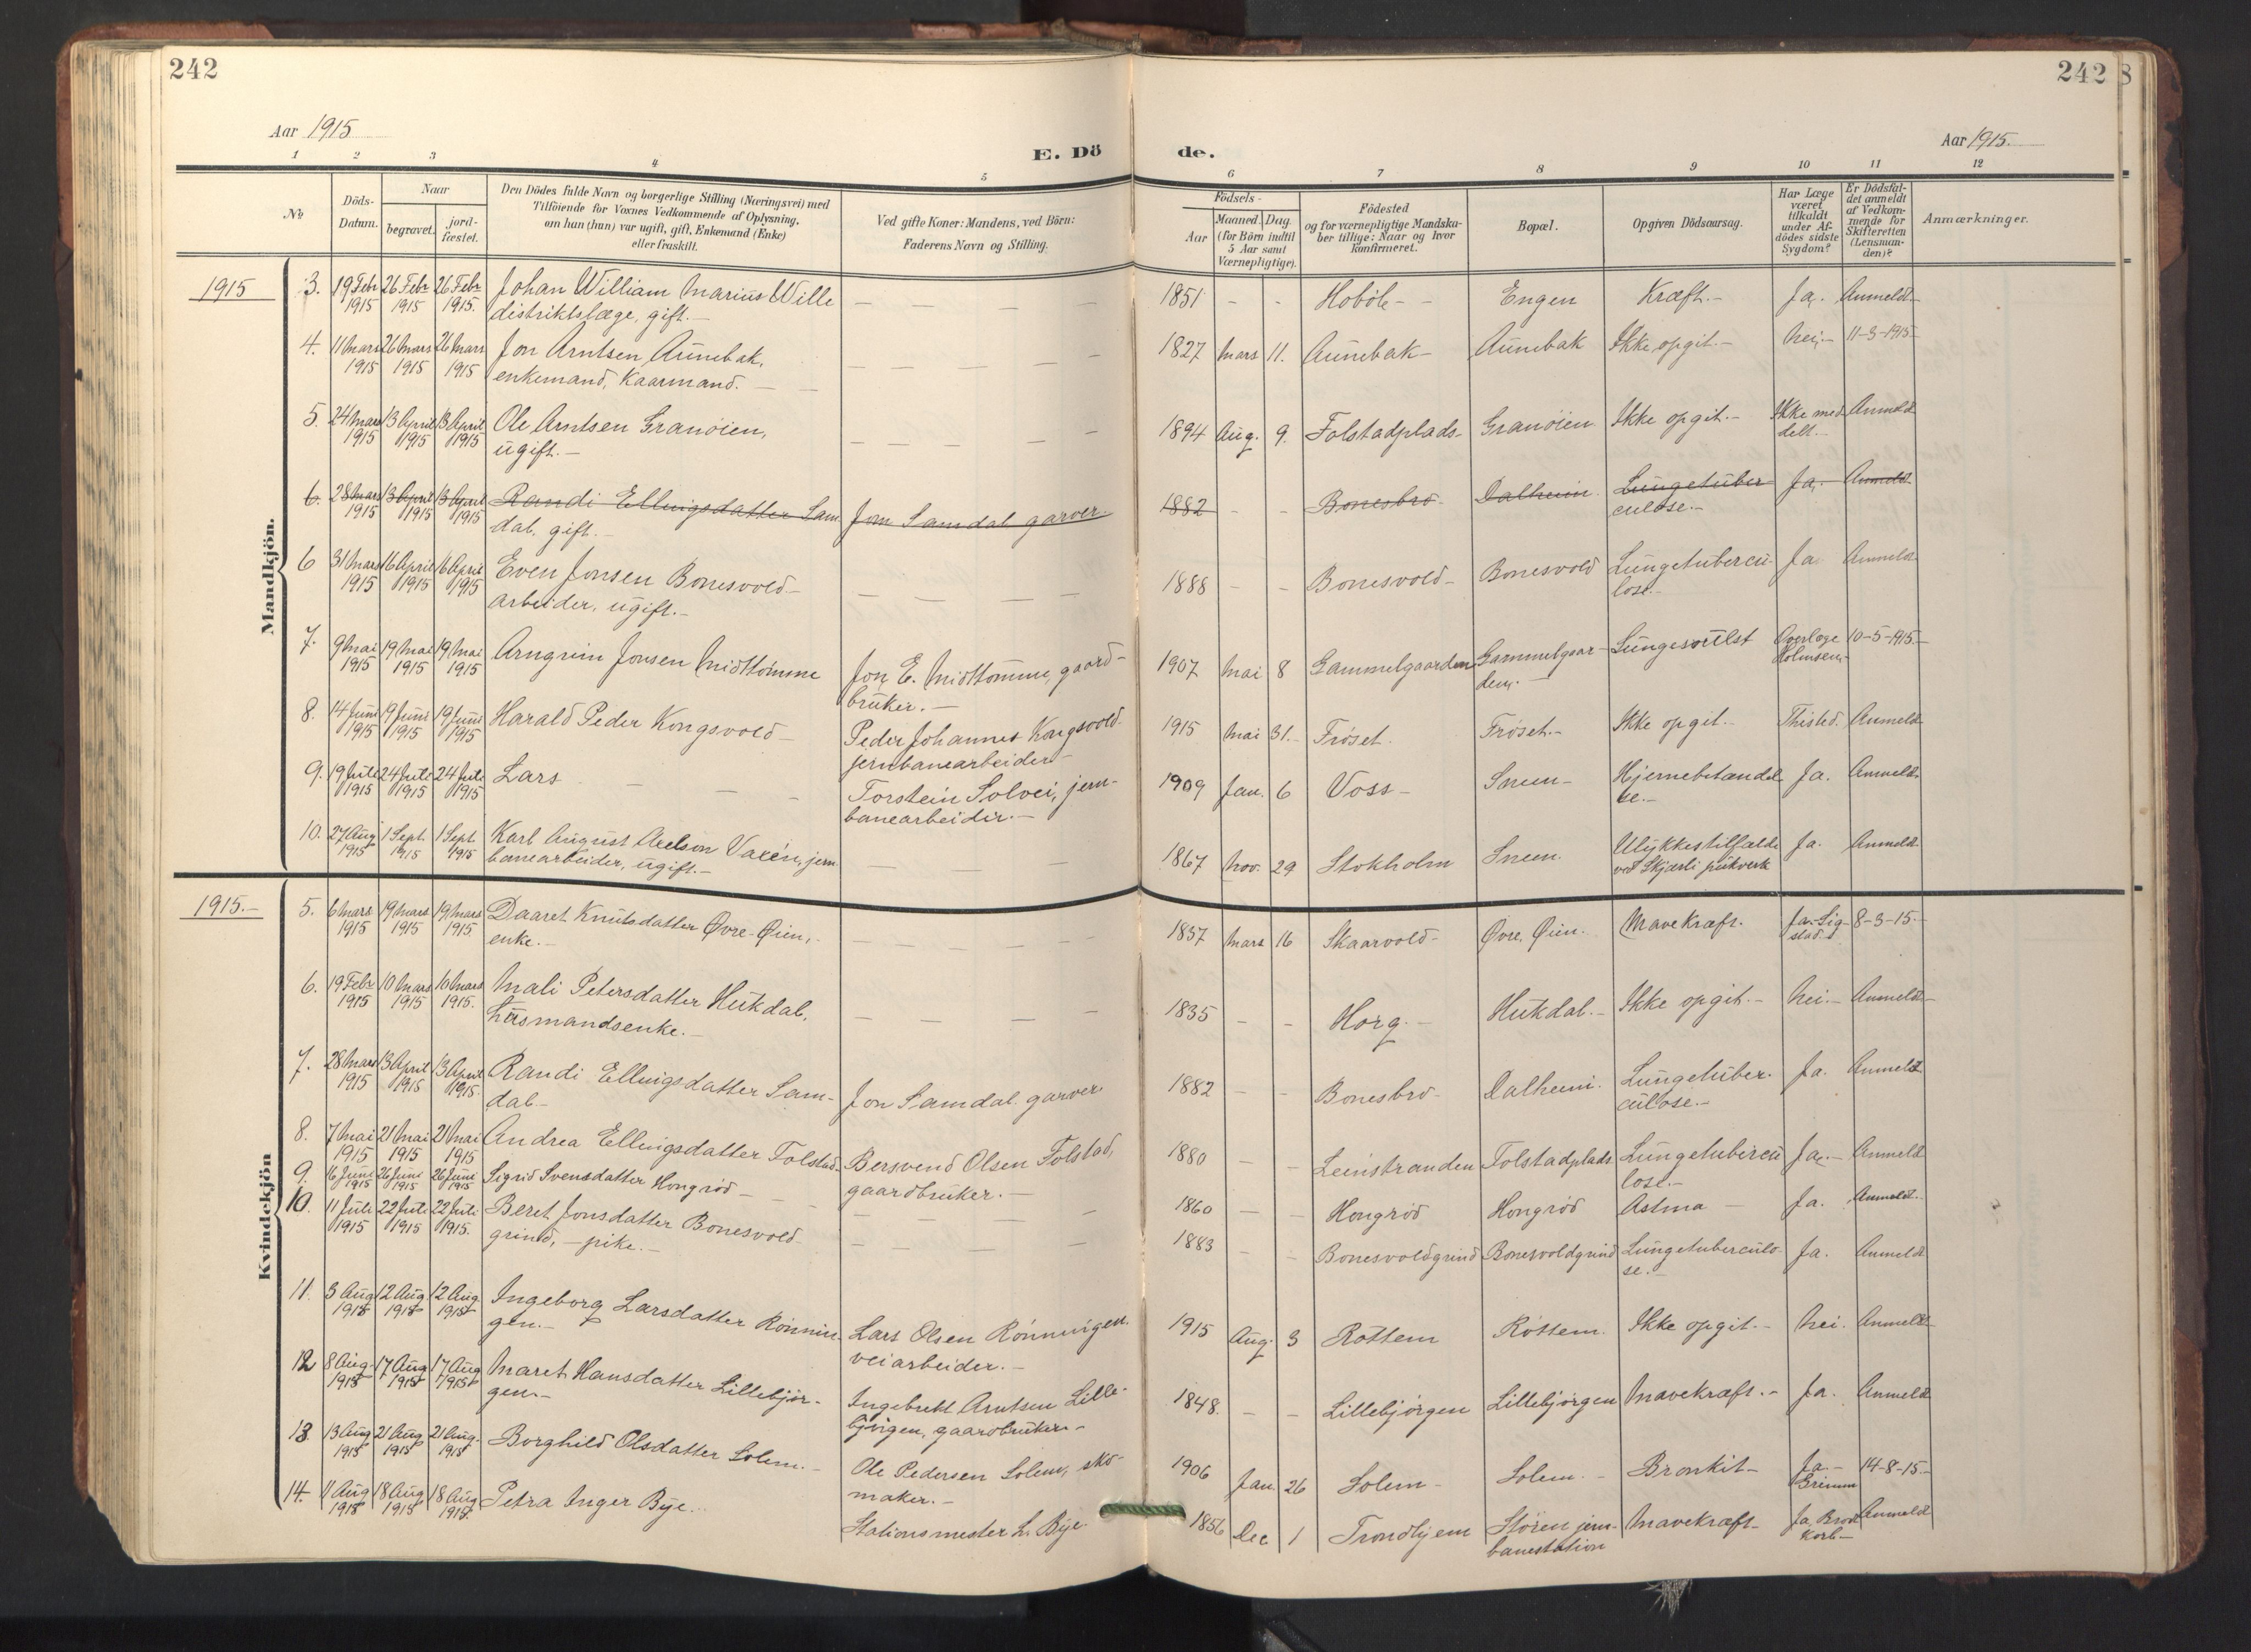 242
242 8
Aar 1915
E. Dö
de.
Aar 1915.
1 2 3 4 5 6 7 8 9 10 11 12
No
Döds-
Datum.
Naar
begravet.
jord-
fæstet.
Den Dödes fulde Navn og borgerlige Stilling (Næringsvei) med
Tilföiende for Voxnes Vedkommende af Oplysning,
om han (hun) var ugift, gift, Enkemand (Enke)
eller fraskilt.
Ved gifte Koner: Mandens, ved Börn:
Faderens Navn og Stilling.
Födsels-
Aar
Maaned. Dag.
(for Börn indtil
5 Aar samt
Værnepligtige).
Födested
og for værnepligtige Mandska-
ber tillige: Naar og hvor
konfirmeret.
Bopæl.
Opgiven Dödsaarsag.
Har Læge
været
tilkaldt
under Af-
dödes sidste
Sygdom?
Er Dödsfal-
det anmeldt
af Vedkom-
mende for
Skifteretten
(Lensman-
den)?
Anmærkninger.
Mandkjön.
1915 3. 19 Febr 26 Febr 26 Febr Johan William Marius Wille — — — 1851 - - Hobøl - - Engen Kræft.- Ja. Anmeldt.-
1915 1915 1915. distriktslæge, gift.-
4. 11 Mars 26 Mars 26 Mars Jon Arntsen Aunebak, — — — — 1827 Mars 11. Aunebak- Aunebak Ikke opgit.- Nei,- 11-3-1915-
1915 1915 1915 enkemand, Kaarmand. —
5. 24 Mars 13 April 13 April Ole Arntsen Granøien, — — — — 1894 Aug. 9. Folstadplads- Granøien Ikke opgit.- Ikke med Anmeldt
1915 1915 1915 ugift.- delt.-
6. 28 Mars 13 April 13 April Randi Ellingsdatter Sam Jon Samdal garver.- 1882 - - Bonesbro- Dalheim. Lungetuber Ja. Anmeldt
1915 1915 1915 dal, gift.- culose.-
6 31 Mars 16 April 16 April Even Jonsen Bonesvold- — — — — 1888 - - Bonesvold- Bonesvold Lungetubercu- Ja. Anmeldt-
1915 1915 1915 arbeider, ugift.- lose.-
7. 9 Mai 19 Mai 19 Mai Arngrim Jonsen Midttømme Jon E. Midttømme, gaard- 1907 Mai 8 Gammelgaarden Gammelgaar- Lungesvulst Overlæge 10-5-1915-
1915 1915 1915 bruker.- den.- Holmsen,-
8. 14 Juni 19 Juni 19 Juni Harald Peder Kongsvold- Peder Johannes Kongsvold- 1915 Mai 31.- Frøset. Frøset.- Ikke opgit.- Thisted. Anmeldt
1915 1915 1915 jernbanearbeider-
9. 19 Juli 24 Juli 24 Juli Lars - - - Torstein Solvei, jern- 1909 Jan. 6 Voss- Sneen- Hjernebetændel Ja. Anmeldt.
1915 1915 1915 banearbeider.- se.-
10. 27 Aug 1 Sept. 1 Sept. Karl August Axelson Vaxén, jern — — 1867 Nov. 29 Stokholm Sneen. Ulykkestilfælde Ja. Anmeldt
1915 1915 1915 banearbeider, ugift.- ved Skjærli pukverk
Kvindekjön
1915.- 5. 6 Mars 19 Mars 19 Mars Daaret Knutsdatter Øvre-Øien, — — — — 1837 Mars 16 Skaarvold- Øvre, Øien. Mavekræft. Ja-Sig- 8-3-15-
1915 1915 1915. enke.- stad.
6. 19 Febr 10 Mars 10 Mars Mali Petersdatter Hukdal, — — — — 1835 - - Horg.- Hukdal.- Ikke opgit.- Nei.- Anmeldt-
1915 1915 1915. husmandsenke.-
7. 28 Mars 13 April 13 April Randi Ellingsdatter Sam- Jon Samdal. garver. 1882 - - Bonesbro- Dalheim. Lungetuber- Ja. Anmeldt
1915 1915 1915. dal- culose.-
8. 7 Mai 21 Mai 21 Mai Andrea Ellingsdatter Folstad- Bersvend Olsen Folstad, 1880 - - Leinstranden Folstadplads Lungetubercu Ja,- Anmeldt
1915 1915 1915 gaardbruker.- lose.-
9. 16 Juni 26 Juni 26 Juni Sigrid Svensdatter Hongrød - - - — — — — 1860 — - Hongrød Hongrød Astma — Ja. Anmeldt.
1915 1915 1915
10. 11 Juli 22 Juli 22 Juli Beret Jonsdatter Bonesvold — — — — 1883 - - Bonesvoldgrind Bonesvoldgrind Lungetuberculo- Ja. Anmeldt
1915 1915 1915. grind, - pike.- se.-
11. 3 Aug 12 Aug. 12 Aug Ingeborg Larsdatter Rønnin- Lars Olsen Rønningen. 1915 Aug. 3 Røttem Røttem. Ikke opgit.- Nei. Anmeldt
1915 1915 1915 gen.- veiarbeider.-
12 8 Aug. 17 Aug 17 Aug Maret Hansdatter Lillebjør- Ingebrikt Arntsen Lille- 1848. - - Lillebjørgen Lillebjørgen Mavekræft.- Ja. Anmeldt
1915 1915 1915 gen.- bjørgen, gaardbruker-
13. 13 Aug 21 Aug 21 Aug. Borghild Olsdatter Solem.- Ole Pedersen Solem, sko- 1906 Jan. 26 Solem- Solem.- Bronkit- Ja.- 14-8-15-
1915 1915 1915 maker.- Grimm
14. 11 Aug 18 Aug 18 Aug Petra Inger Bye. Stationsmester L. Bye. 1856 Dec 1 Trondhjem Støren jern- Mavekræft- Ja, Brod Anmeldt
1915 1915 1915. banestation korb-